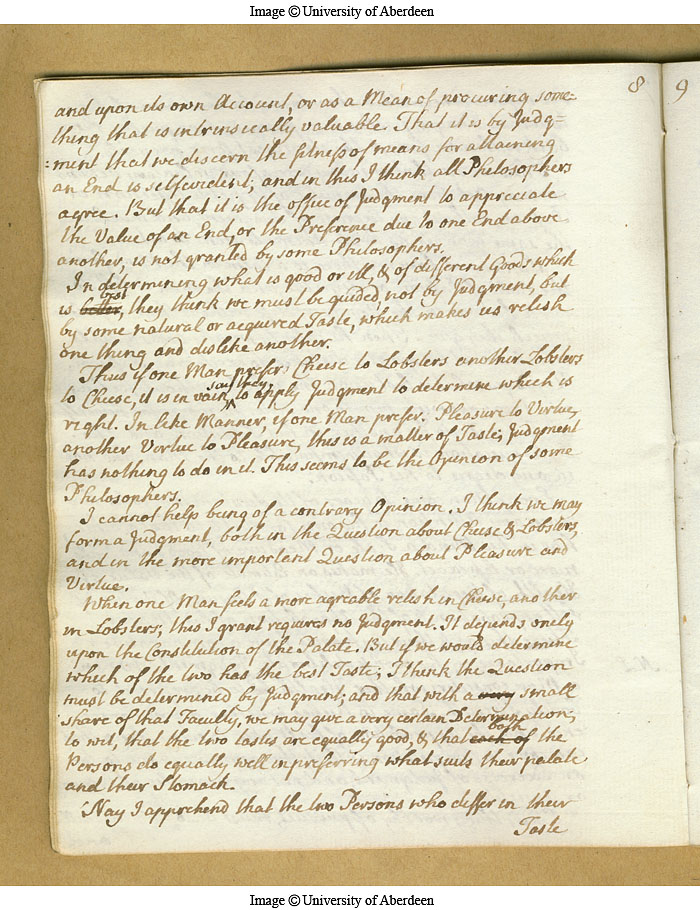 Image © University of Aberdeen
8 9
and upon its own Account, or as a Mean of procuring some=
thing that is intrinsically valuable. That it is by Judg=
=ment that we discern the fitness of means for attaining
an End is selfevident; and in this I think all Philosophers
agree. But that it is the office of Judgment to appreciate
the Value of an End, or the Preference due to one End above
another, is not granted by some Philosophers.
In determining what is good or ill, & of different Goods which
best
is better, they think we must be guided not by Judgment, but
by some natural or acquired Taste, which makes us relish
one thing and dislike another.
Thus if one Man prefer Cheese to Lobsters another Lobsters
say they,
to Cheese, it is in vain, to apply Judgment to determine which is
right. In like Manner, if one Man prefer Pleasure to Virtue,
another Virtue to Pleasure, this is a matter of Taste; Judgment
has nothing to do in it. This seems to be the Opinion of some
Philosophers.
I cannot help being of a contrary Opinion. I think we may
form a Judgment, both in the Question about Cheese & Lobsters,
and in the more important Question about Pleasure and
Virtue.
When one Man feels a more agreable relish in Cheese, another
in Lobsters; this I grant requires no Judgment. It depends onely
upon the Constitution of the Palate. But if we would determine
which of the two has the best Taste; I think the Question
must be determined by Judgment; and that with a very small
share of that Faculty, we may give a very certain Determination,
both
to wit, that the two tastes are equally good, & that each of the
Persons do equally well in preferring what suits their palate
and their Stomach.
Nay I apprehend that the two Persons who differ in their
Taste
Image © University of Aberdeen